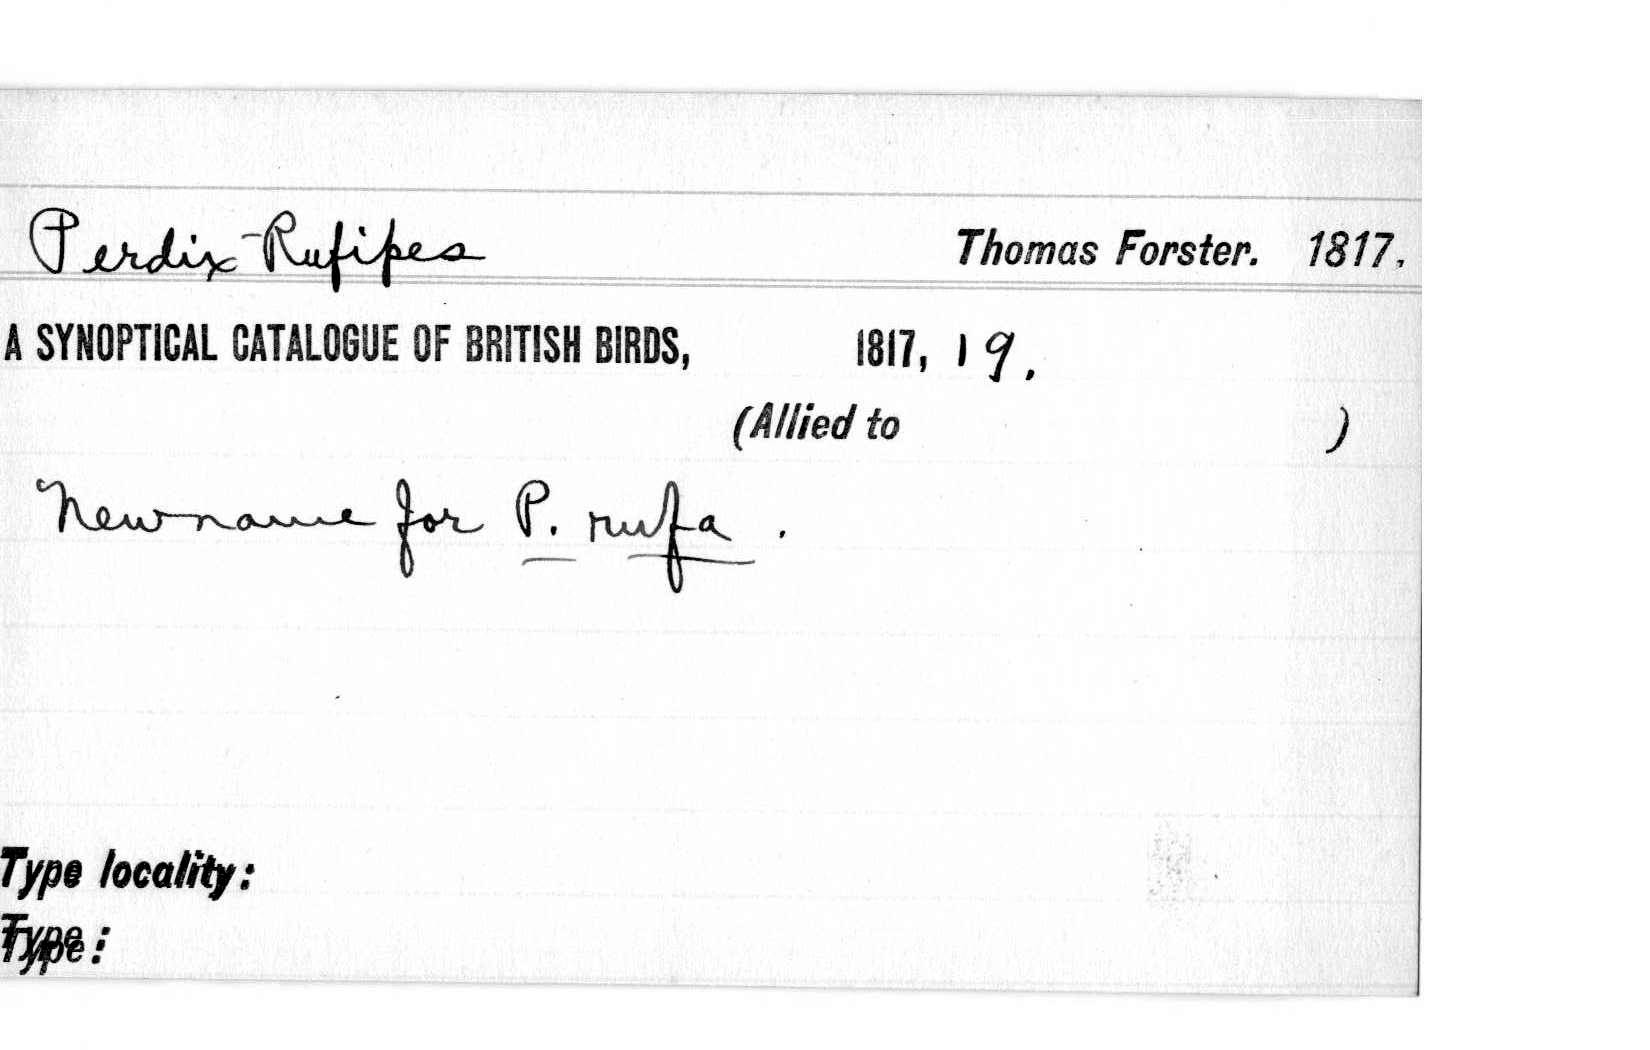 Perdix-Rufipes Thomas Forster. 1817.
A SYNOPTICAL CATALOGUE OF BRITISH BIRDS, 1817, 19.
(Allied to )
New name for P. rufa .
Type locality:
Type: